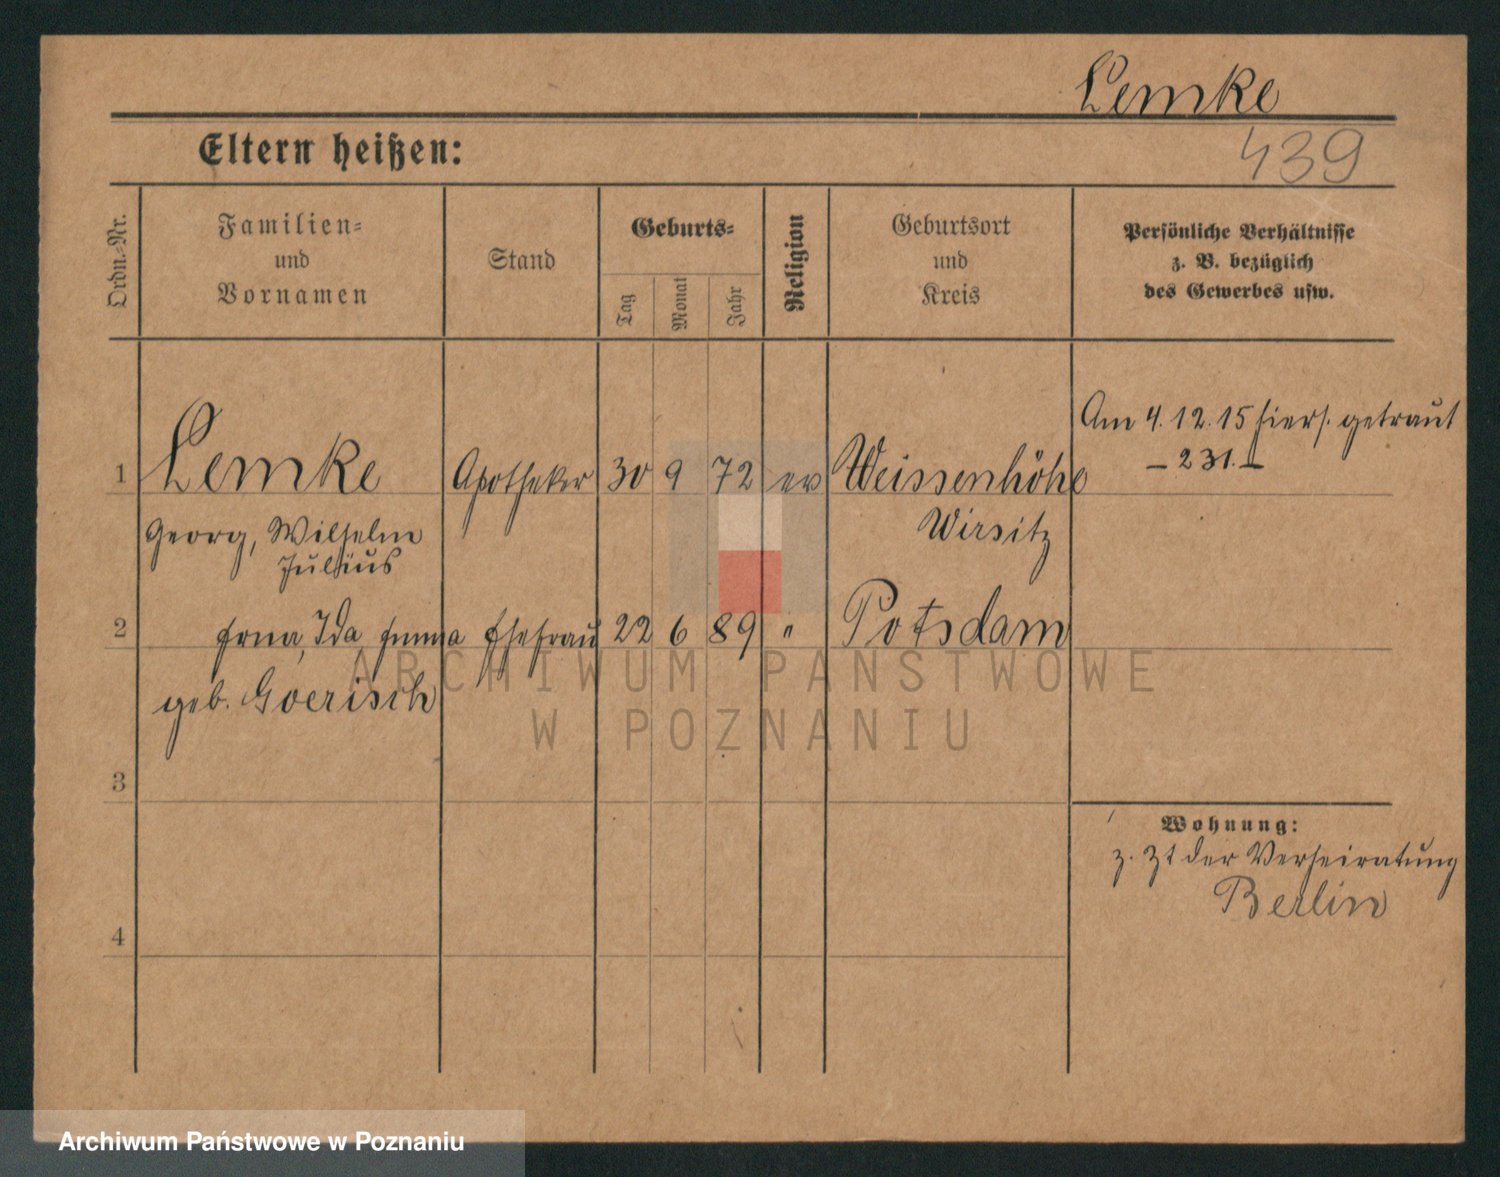 Lemke
439
Eltern heißen:
Ordn.-Nr.
Familien-
und
Vornamen
Stand
Geburts-
Tag
Monat
Jahr
Religion
Geburtsort
und
Kreis
Persönliche Verhältnisse
z. B. bezüglich
des Gewerbes usw.
1 Lemke Apotheker 30 9 72 ev Weissenhöhe
Am 4.12.15 hiers. getraut
- 231. -
Georg, Wilhelm
Julius
Wirsitz
2 Erna, Ida Emma Ehefrau 22 6 89 " Potsdam
geb. Goerisch
3
4
Wohnung:
z. Zt der Verheiratung
Berlin
ARCHIWUM PAŃSTWOWE
W POZNANIU
Archiwum Państwowe w Poznaniu